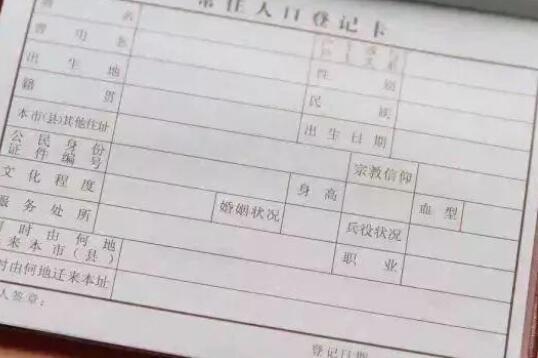 常住人口登记卡
姓 名
曾 用 名 性 别
出 生 地 民 族
籍 贯 出 生 日 期
本市(县)其他住址 宗教信仰
公 民 身 份
证 件 编 号 身 高 血 型
文 化 程 度 婚姻状况 兵役状况
服 务 处 所 职 业
时 由 何 地
来 本 市 ( 县 )
时由何地迁来本址
人签章: 登记日期